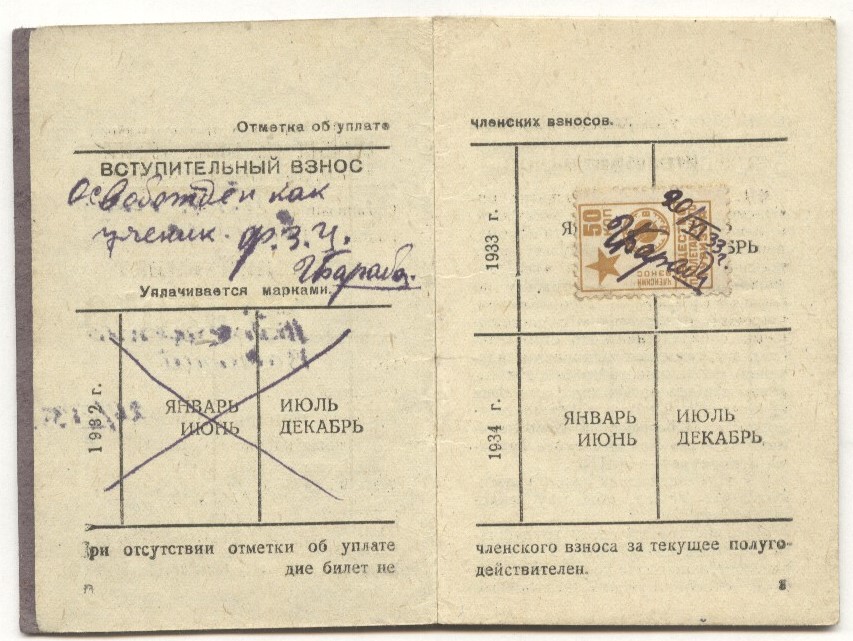 Отметка об уплате
ВСТУПИТЕЛЬНЫЙ ВЗНОС
Освобождён как
ученик. Ф.З.У.
Уплачивается марками.
1932 г.
ЯНВАРЬ
ИЮНЬ
ИЮЛЬ
ДЕКАБРЬ
ри отсутствии отметки об уплате
дие билет не
членских взносов.
1933 г.
50
ЧЛЕНСКИЙ
ВЗНОС
20/VI 33 г.
БРЬ
1934 г.
ЯНВАРЬ
ИЮНЬ
ИЮЛЬ
ДЕКАБРЬ
членского взноса за текущее полуго-
действителен.